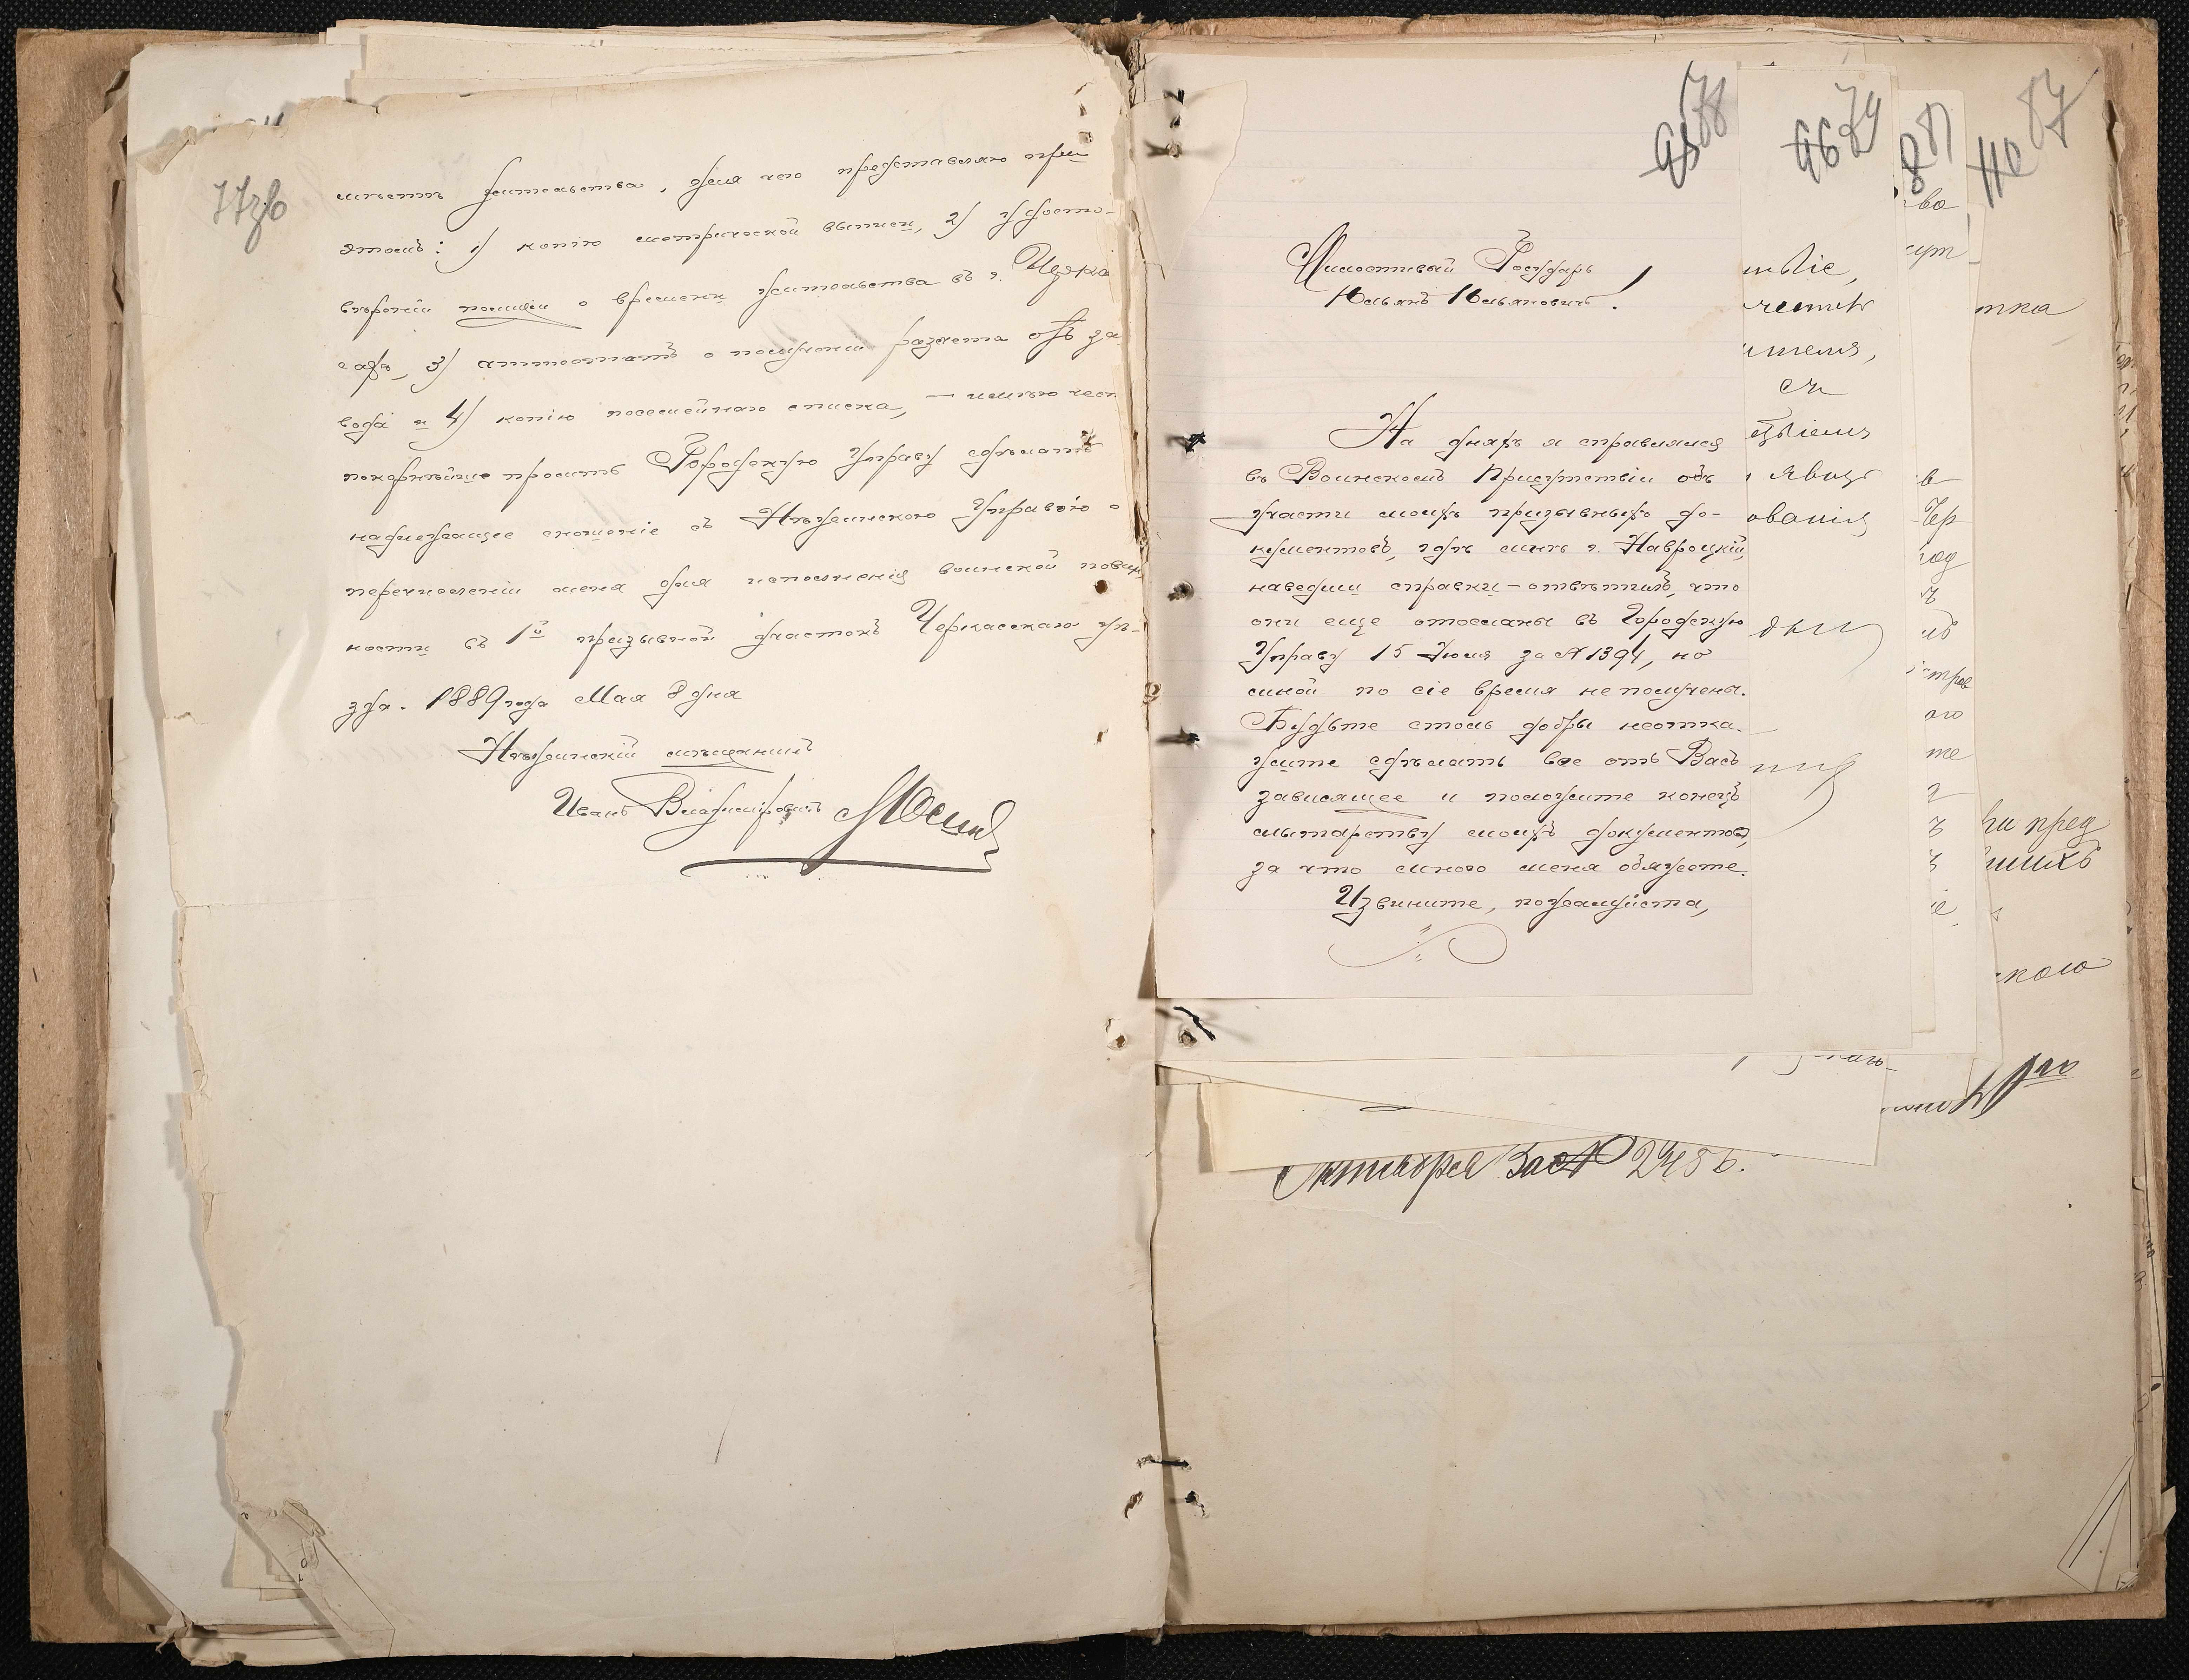 77 зв
мѣстѣ жительства, для чего представляю при
этомъ: 1) копію метрической выписи, 2) удосто-
вѣреніе полиціи о времени жительства въ г.
3) аттестатъ о полученіи разсчета отъ за
вода и 4) копію посемейнаго списка, — имѣю чес
покорнѣйше просить Городскую Управу сдѣлать
надлежащее сношеніе съ Нѣжинскою Управою о
перечисленіи меня для исполненія воинской повин
ности въ 1й призывной участокъ Черкасскаго уѣ-
зда. 1889 года Мая 8 дня
Нѣжинскій мѣщанинъ
Иванъ Владиміровичъ
95 78
Милостивый Государь
Юльянъ Юльяновичъ!
На дняхъ я справлялся
въ Воинскомъ Присутствіи объ
участи моихъ призывныхъ до-
кументовъ, гдѣ мнѣ г. Навроцкій,
наведши справки — отвѣтилъ, что
они еще отосланы въ Городскую
Управу 15 Іюля за № 1394, но
мной по сіе время не получены.
Будьте столь добры неотка-
жите сдѣлать все отъ Васъ
зависящее и положите конецъ
мытарству моихъ документовъ,
за что много меня обяжете.
Извините, пожалуйста,
96 79
ствіе,
ителя,
съ
овані
87
тка
ни пред
скаго
Октября За № 2486.